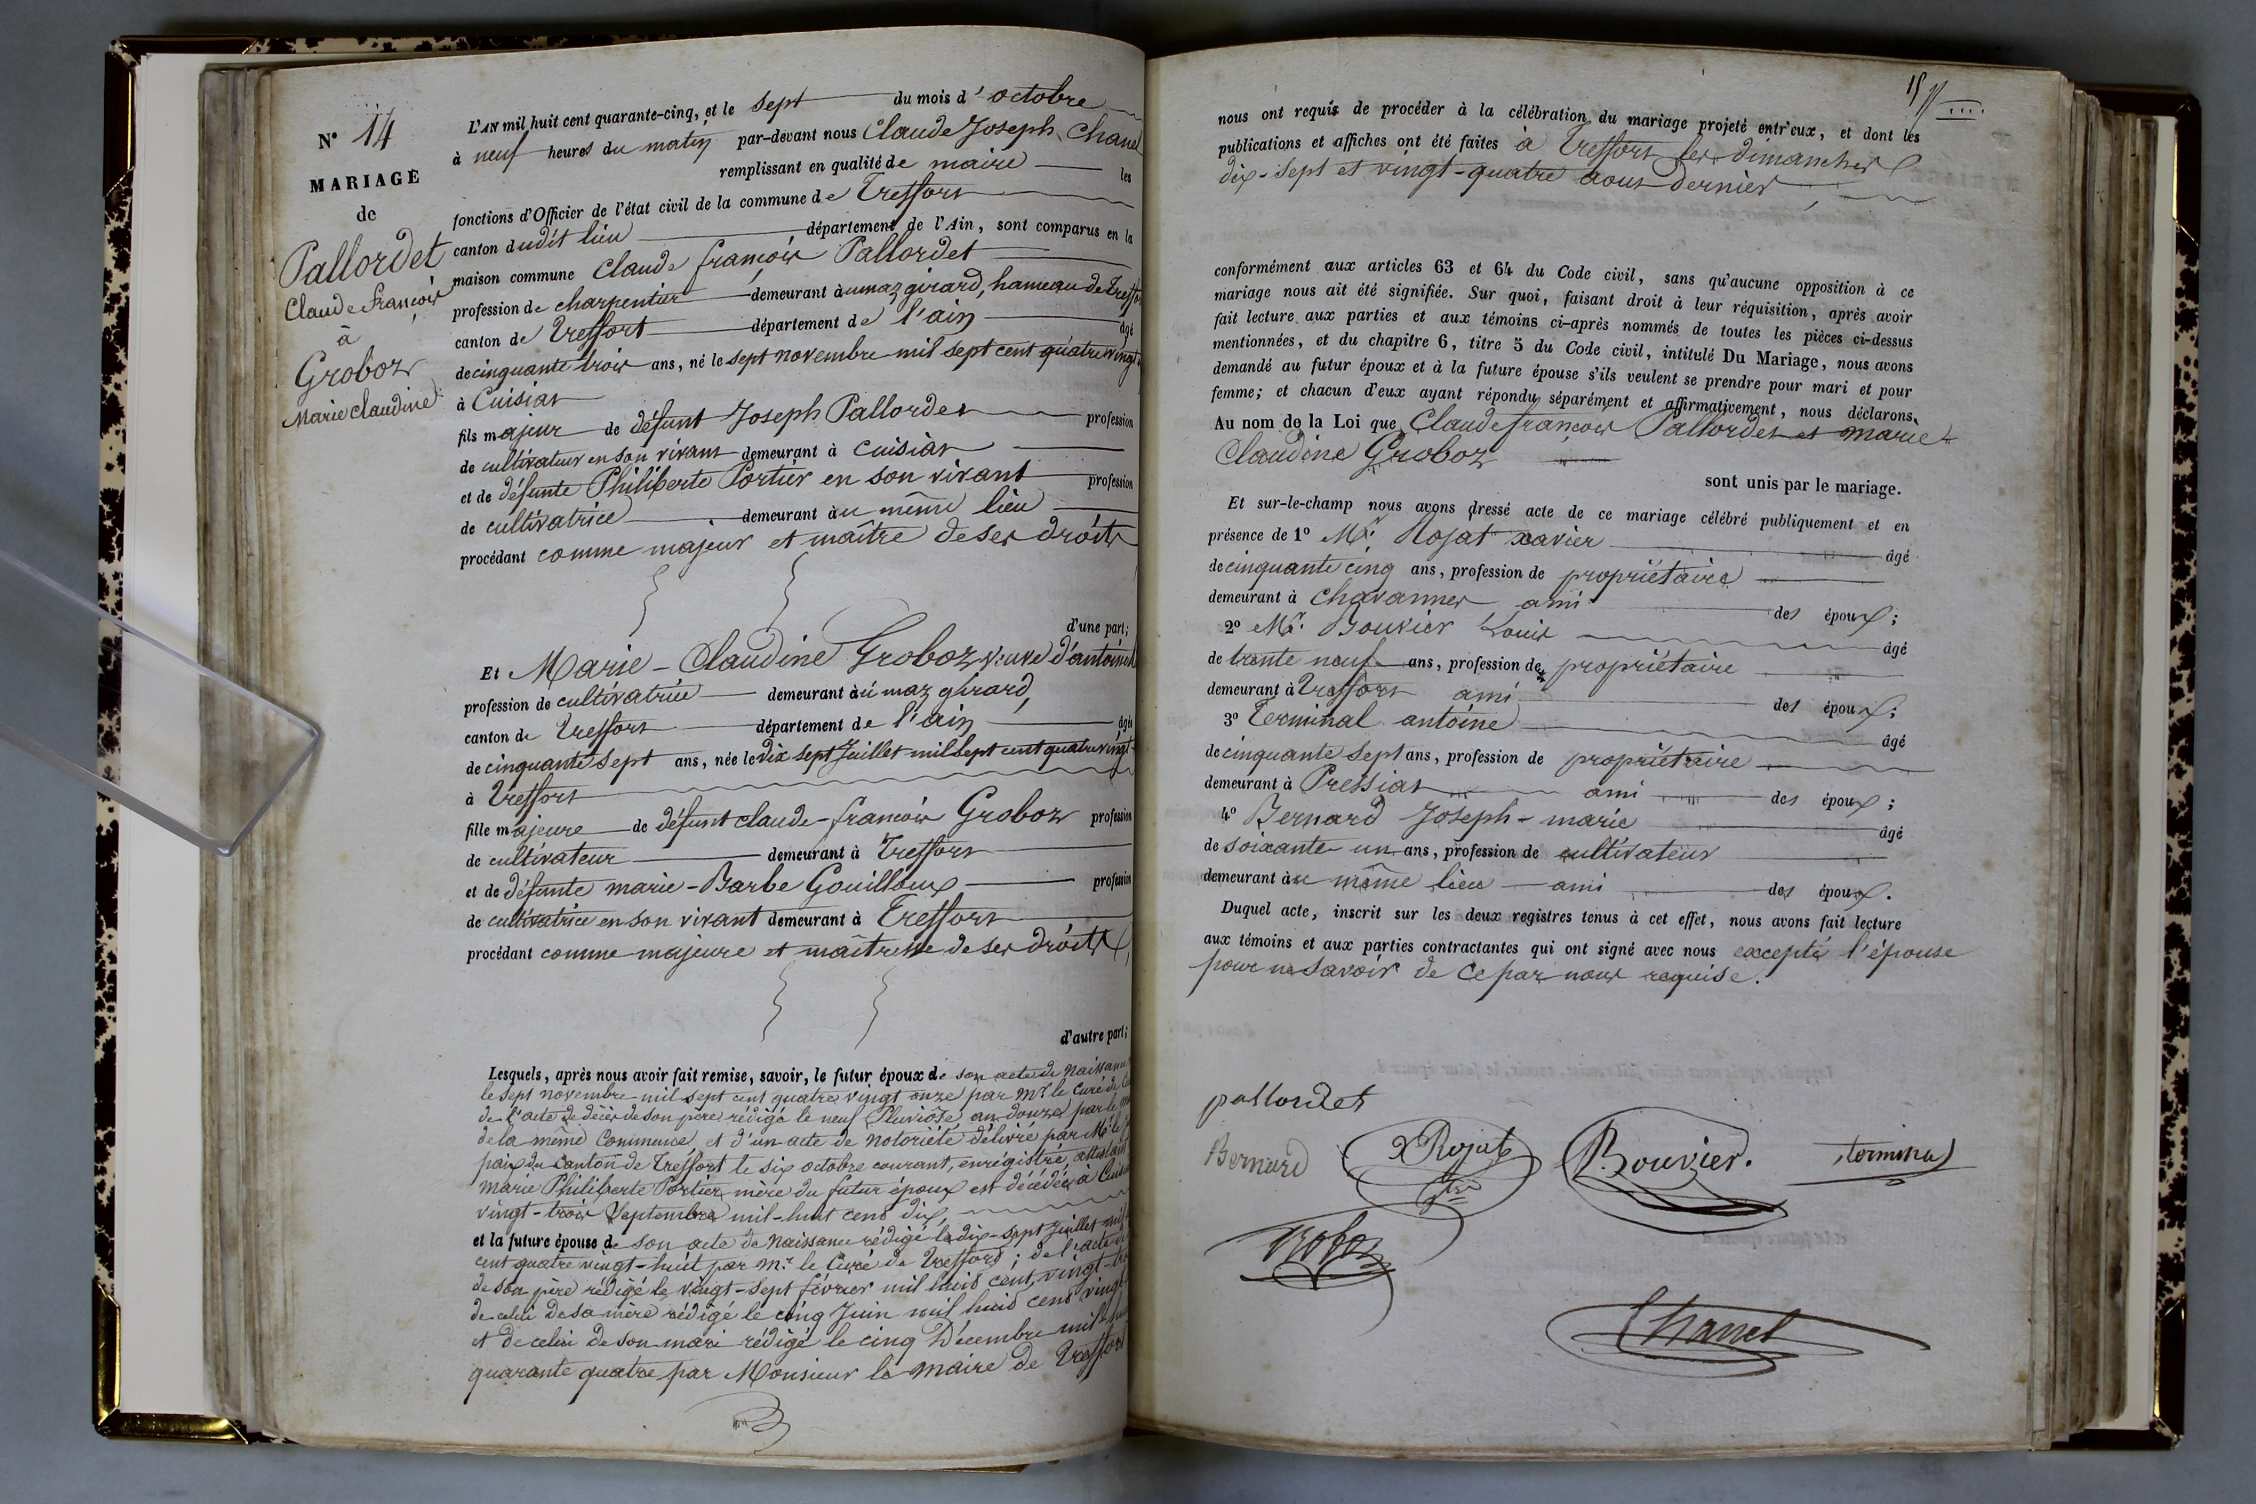 N° 14
MARIAGE
de
Pallordet
Claude françois
à
Groboz
Marie claudine
L'AN mil huit cent quarante-cinq, et le sept du mois d'octobre
à neuf heures du matin par-devant nous Claude Joseph Chanel
remplissant en qualité de maire les
fonctions d'Officier de l'état civil de la commune de Treffort
canton dudit lieu département de l'Ain, sont comparus en la
maison commune Claude françois Pallordet
profession de charpentier demeurant au maz girard, hameau de Treffort
canton de Treffort département de l'ain âgé
de cinquante trois ans, né le sept novembre mil sept cent quatre vingt
à Cuisiat
fils majeur de défunt Joseph Pallordet profession
de cultivateur en son vivant demeurant à Cuisiat
et de défunte Philiberte Portier en son vivant profession
de cultivatrice demeurant au même lieu
procédant comme majeur et maître de ses droits
d'une part;
Et Marie-Claudine Groboz veuve d'antoine
profession de cultivatrice demeurant àu maz girard,
canton de Treffort département de l'ain âgée
de cinquante sept ans, née le dix sept Juillet mil sept cent quatre vingt
à Treffort
fille majeure de défunt claude-francois Groboz profession
de cultivateur demeurant à Treffort
et de défunte marie-Barbe Gouilloux profession
de cultivatrice en son vivant demeurant à Treffort
procédant comme majeure et maîtresse de ses droits,
d'autre part;
Lesquels, après nous avoir fait remise, savoir, le futur époux de son acte de naissance
le sept novembre mil sept cent quatre vingt onze par Mr le Curé de
de l'acte de décès de son père rédigé le neuf Pluviose an douze par le
de la même Commune, et d'un acte de notoriété délivré par Mr le
paix du canton de Treffort le six octobre courant, enrégistré, attestant
marie Philiberte Portier mère du futur époux est décédée à Cuisiat
vingt-trois Septembre mil-huit cent dix,
et la future épouse de son acte de naissance rédigé le dix-sept Juillet mil
cent quatre vingt-huit par Mr. le Curé de Treffort; de l'acte de
de son père rédigé le vingt-sept février mil huit cent vingt
de celui de sa mère rédigé le cinq Juin mil huit cent vingt
et de celui de son mari rédigé le cinq Décembre mil huit
quarante quatre par Monsieur le maire de Treffort
15
nous ont requis de procéder à la célébration du mariage projeté entr'eux, et dont les
publications et affiches ont été faites à Treffort les dimanches
dix-sept et vingt-quatre aout dernier,
conformément aux articles 63 et 64 du Code civil, sans qu'aucune opposition à ce
mariage nous ait été signifiée. Sur quoi, faisant droit à leur réquisition, après avoir
fait lecture aux parties et aux témoins ci-après nommés de toutes les pièces ci-dessus
mentionnées, et du chapitre 6, titre 5 du Code civil, intitulé Du Mariage, nous avons
demandé au futur époux et à la future épouse s'ils veulent se prendre pour mari et pour
femme; et chacun d'eux ayant répondu séparément et affirmativement, nous déclarons,
Au nom de la Loi que Claude françois Pallordet et marie-
Claudine Groboz
sont unis par le mariage.
Et sur-le-champ nous avons dressé acte de ce mariage célébré publiquement et en
présence de 1° Mr. Rojat xavier âgé
de cinquante cinq ans, profession de propriétaire
demeurant à Chavannes ami des époux;
2° Mr. Bouvier Louis âgé
de trente neuf ans, profession de propriétaire
demeurant à Treffort ami des époux;
3° Terminal antoine âgé
de cinquante sept ans, profession de propriétaire
demeurant à Pressiat ami des époux;
4° Bernard Joseph-marie âgé
de soixante un ans, profession de cultivateur
demeurant àu même lieu ami des époux.
Duquel acte, inscrit sur les deux registres tenus à cet effet, nous avons fait lecture
aux témoins et aux parties contractantes qui ont signé avec nous excepté l'épouse
pour ne savoir de ce par nous requise.
pallordet
Bernard X Rojat Bouvier. terminal
Groboz
Chanel